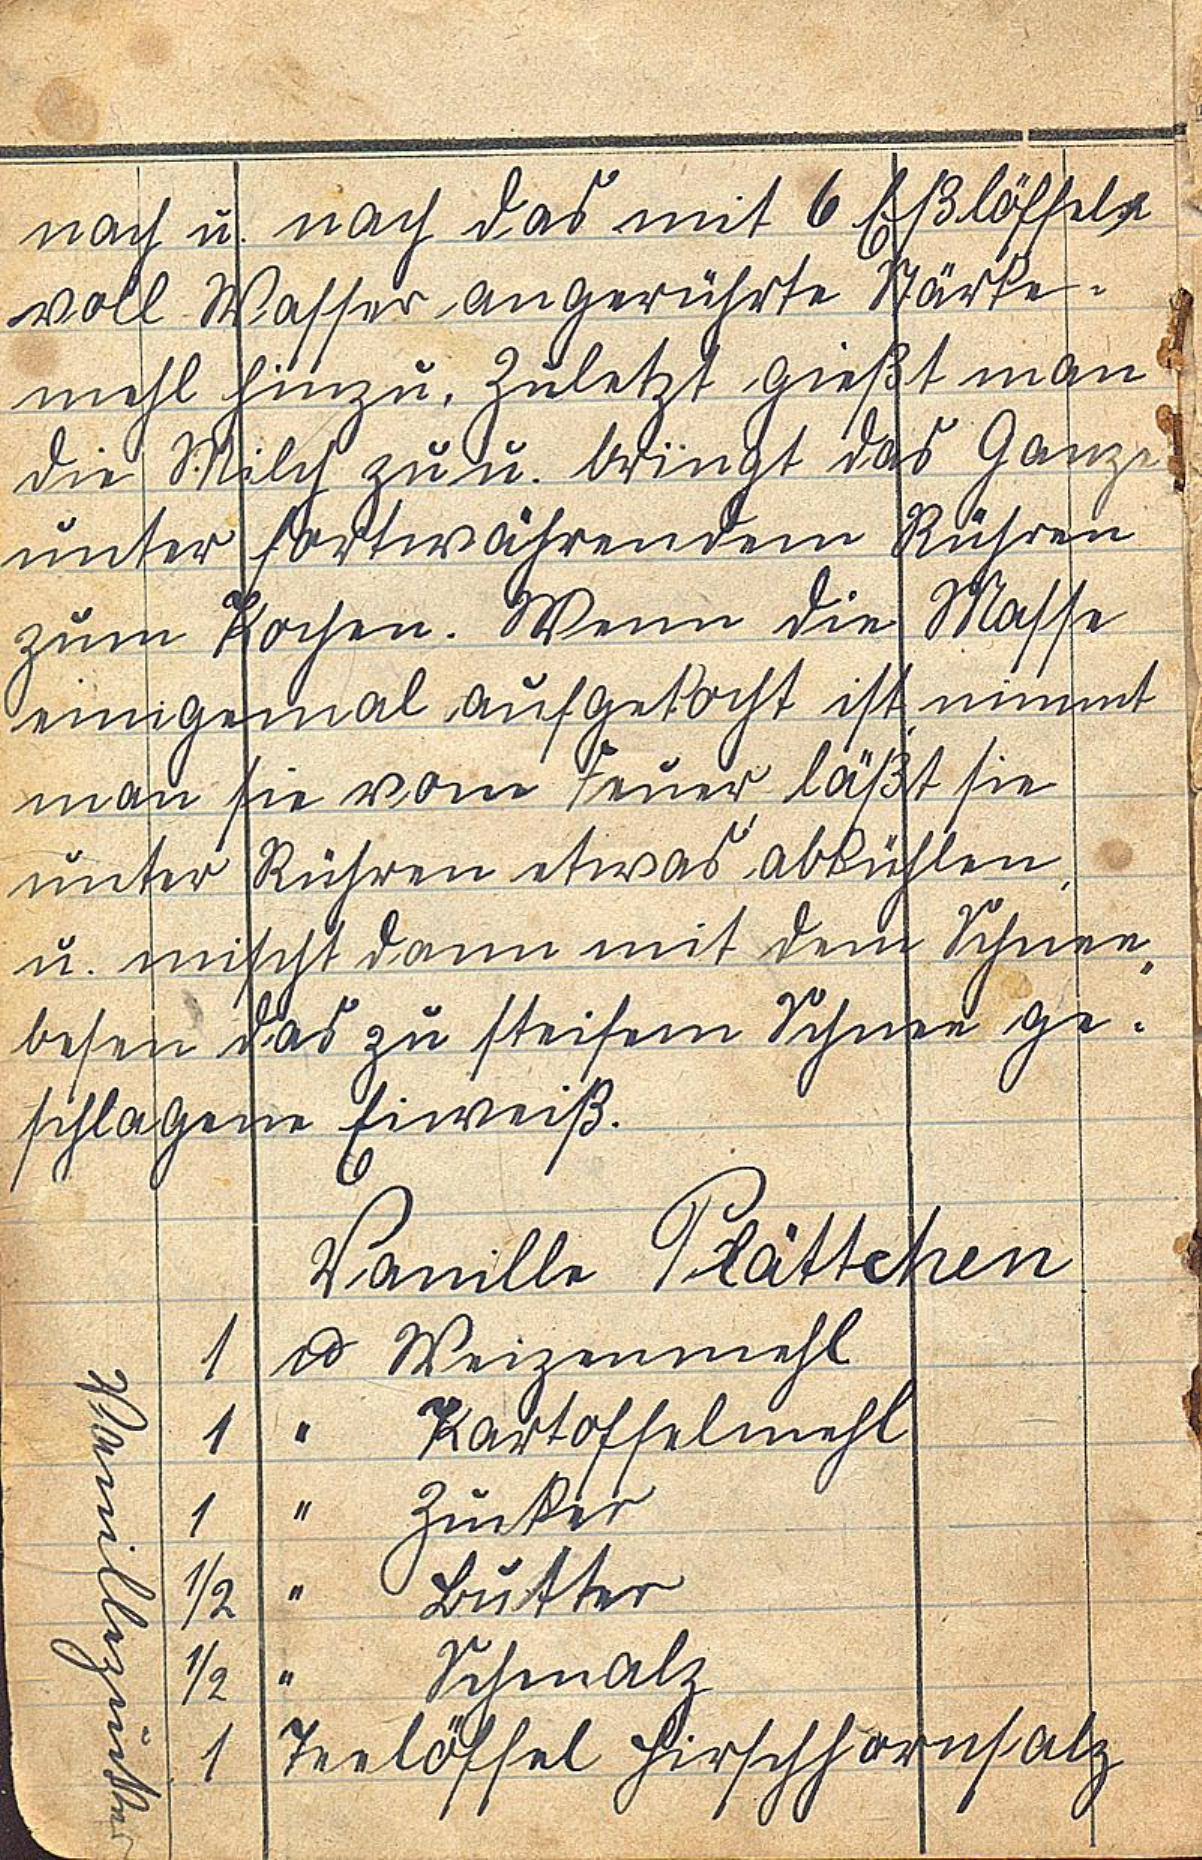 nach u. nach das mit 6 Eßlöffeln
voll Wasser angerührte Stärke-
mehl hinzu. Zuletzt gießt man
die Milch zu u. bringt das Ganze
unter fortwährendem Rühren
zum Kochen. Wenn die Masse
einigemal aufgekocht ist, nimmt
man sie vom Feuer läßt sie
unter Rühren etwas abkühlen,
u. mischt dann mit dem Schnee-
besen das zu steifem Schnee ge-
schlagene Eiweiß.
Vanille Plättchen
1 ₰ Weizenmehl
1 " Kartoffelmehl
1 " Zucker
1/2 " Butter
1/2 " Schmalz
1 Teelöffel Hirschhornsalz
Vanillezucker